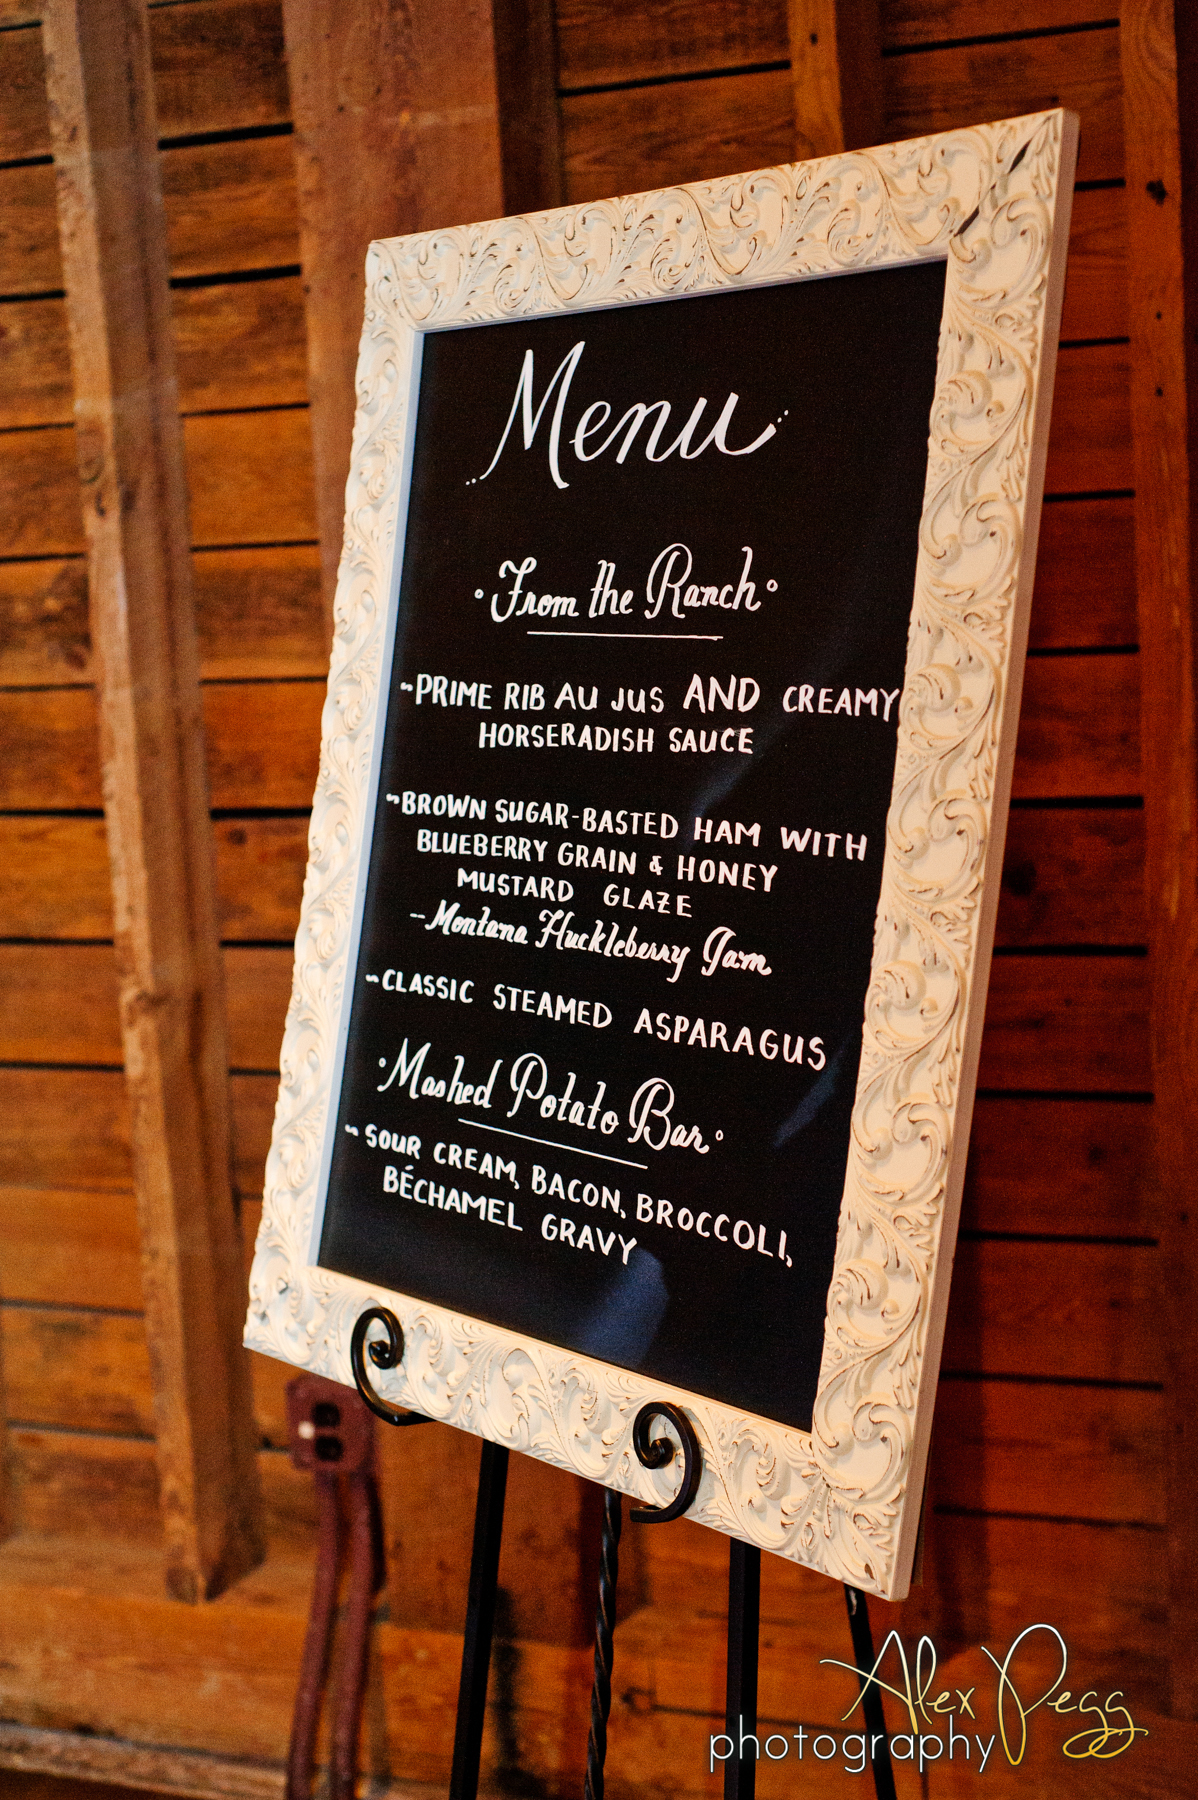 Menu
From the Ranch
~PRIME RIB AU JUS AND CREAMY
HORSERADISH SAUCE
~BROWN SUGAR-BASTED HAM WITH
BLUEBERRY GRAIN & HONEY
MUSTARD GLAZE
--Montana Huckleberry Jam
~CLASSIC STEAMED ASPARAGUS
Mashed Potato Bar
~SOUR CREAM, BACON, BROCCOLI,
BÉCHAMEL GRAVY
Alex Pegg
photography